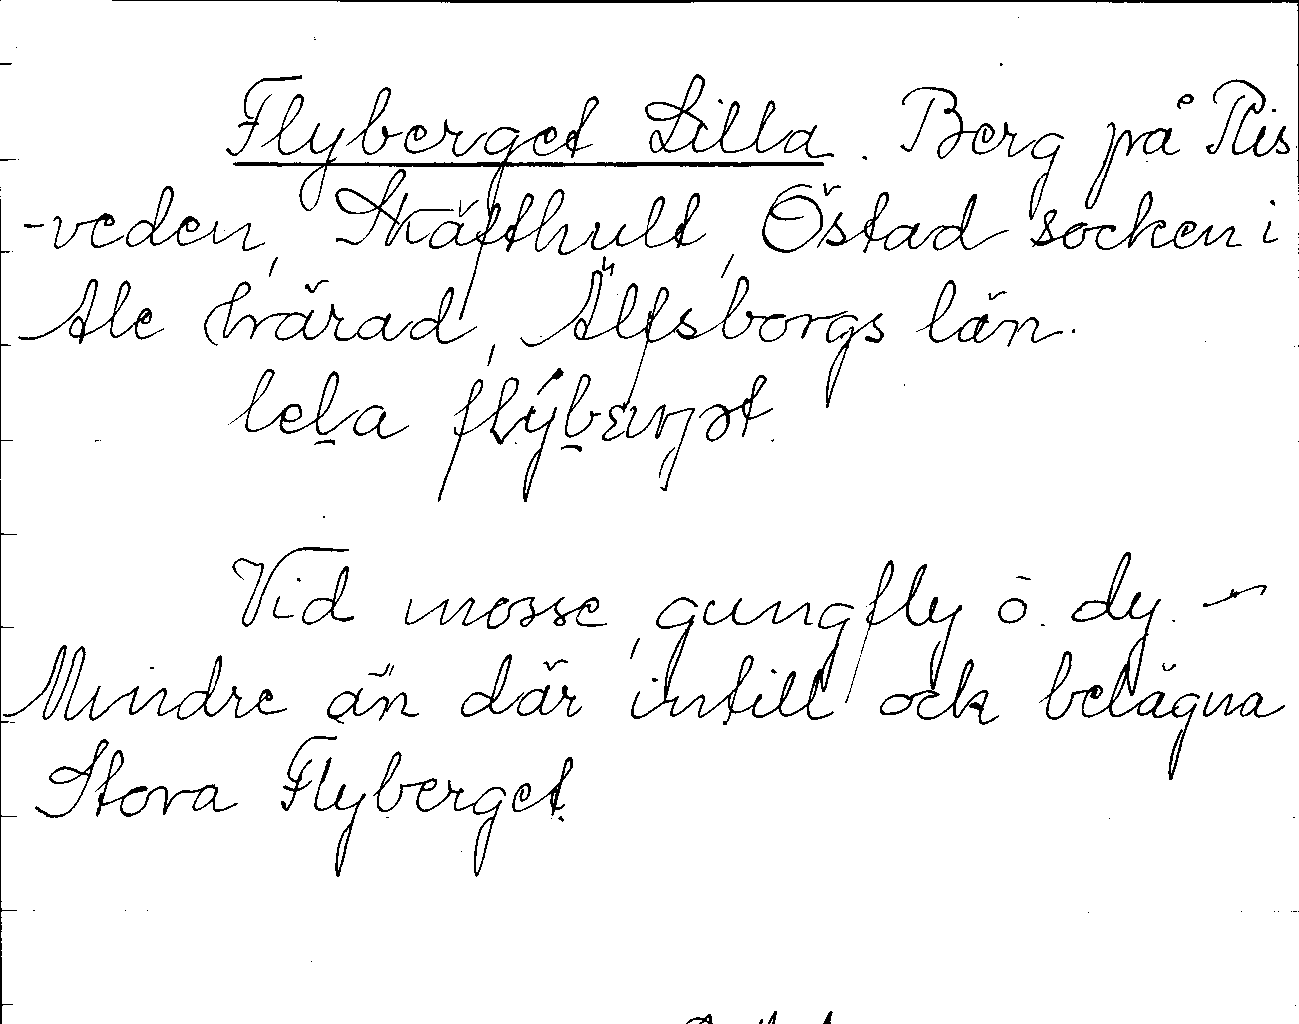 Flyberget Lilla. Berg på Ris
-veden, Skäfthult, Östad socken i
Ale härad, Älfsborgs län.
Vid mosse, gungfly o. dy. –
Mindre än där intill ock belägna
Stora Flyberget.